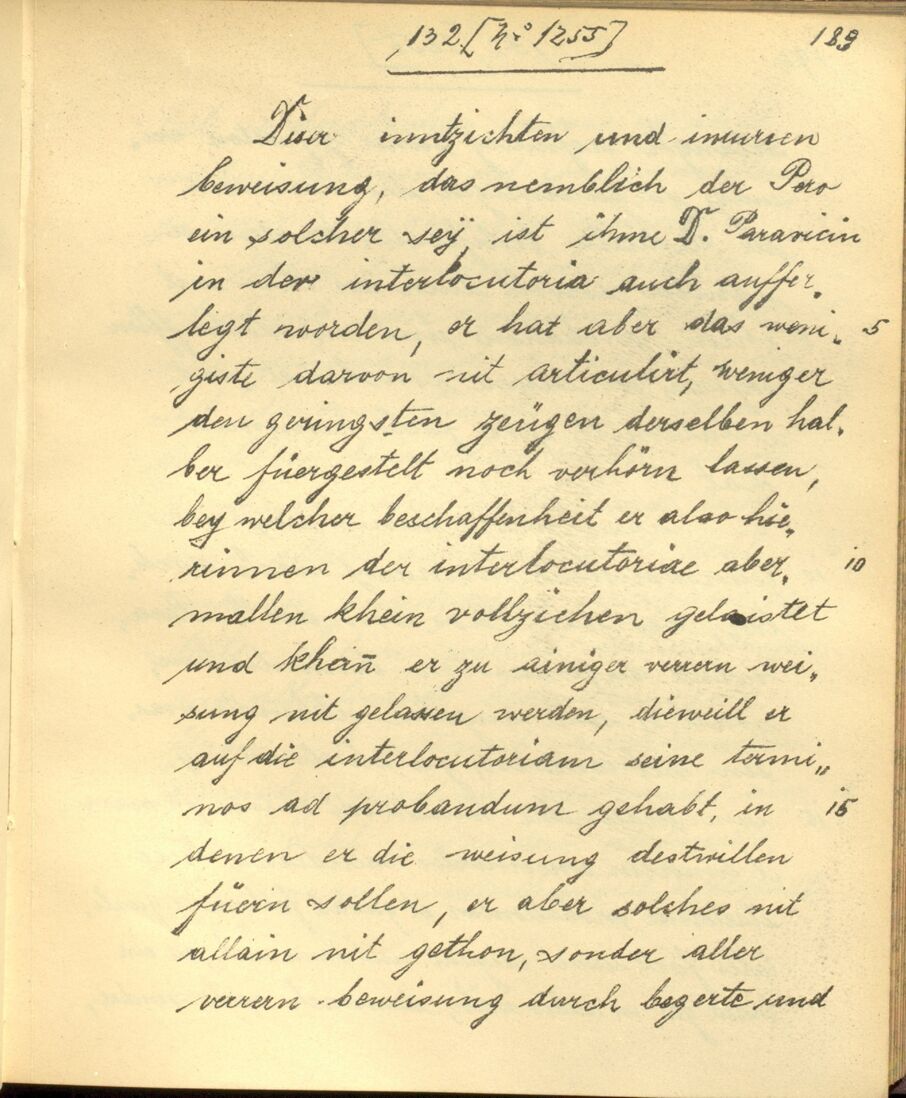 132 [No 1255] 189
Diser inntzichten und inwurfen
beweisung, das nemblich der Pero
ein solcher seÿ, ist ihme D. Paravicin
in der interlocutoria auch auffer„
legt worden, er hat aber das weni„ 5
giste darvon nit articulirt, weniger
den geringsten zeügen derselben hal„
ber füergestelt noch verhörn lassen,
bey welcher beschaffenheit er also hie„
rinnen der interlocutoriae aber„ 10
mallen khein vollziehen gelaistet
und khan̄ er zu ainiger verrern wei„
sung nit gelassen werden, dieweill er
auf die interlocutoriam seine termi„
nos ad probandum gehabt, in 15
denen er die weisung destwillen
füern sollen, er aber solches nit
allain nit gethon, sonder aller
verrern beweisung durch begerte und